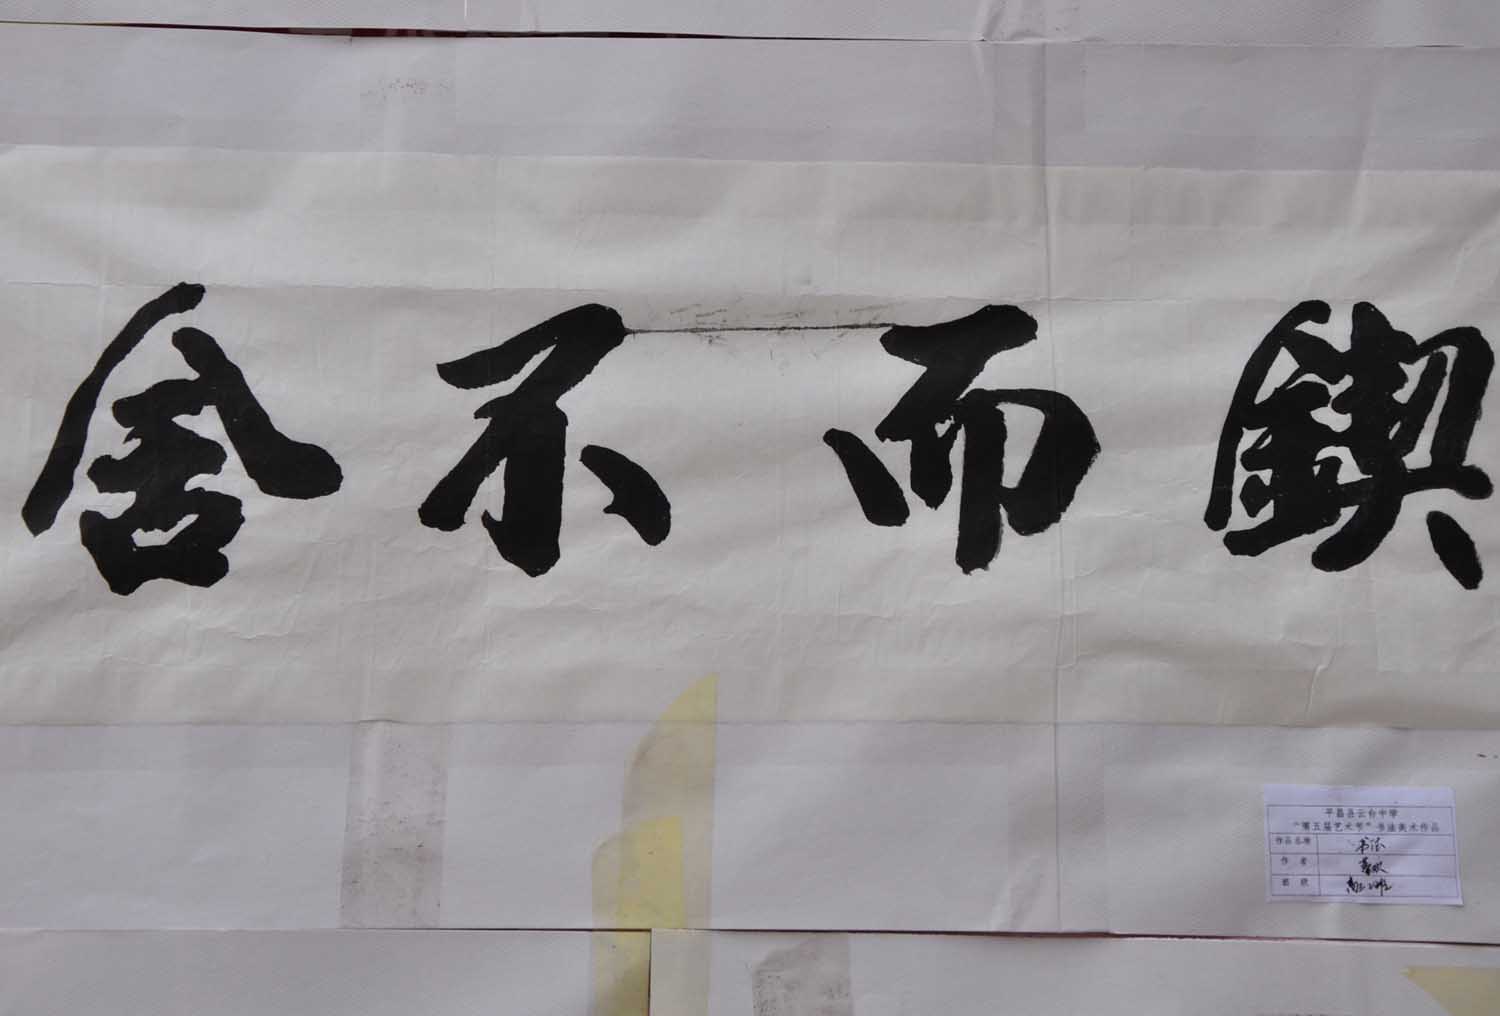 鍥而不舍
平昌县云台中学
“第五届艺术节”书法美术作品
作品名称 书法
作 者
班 级